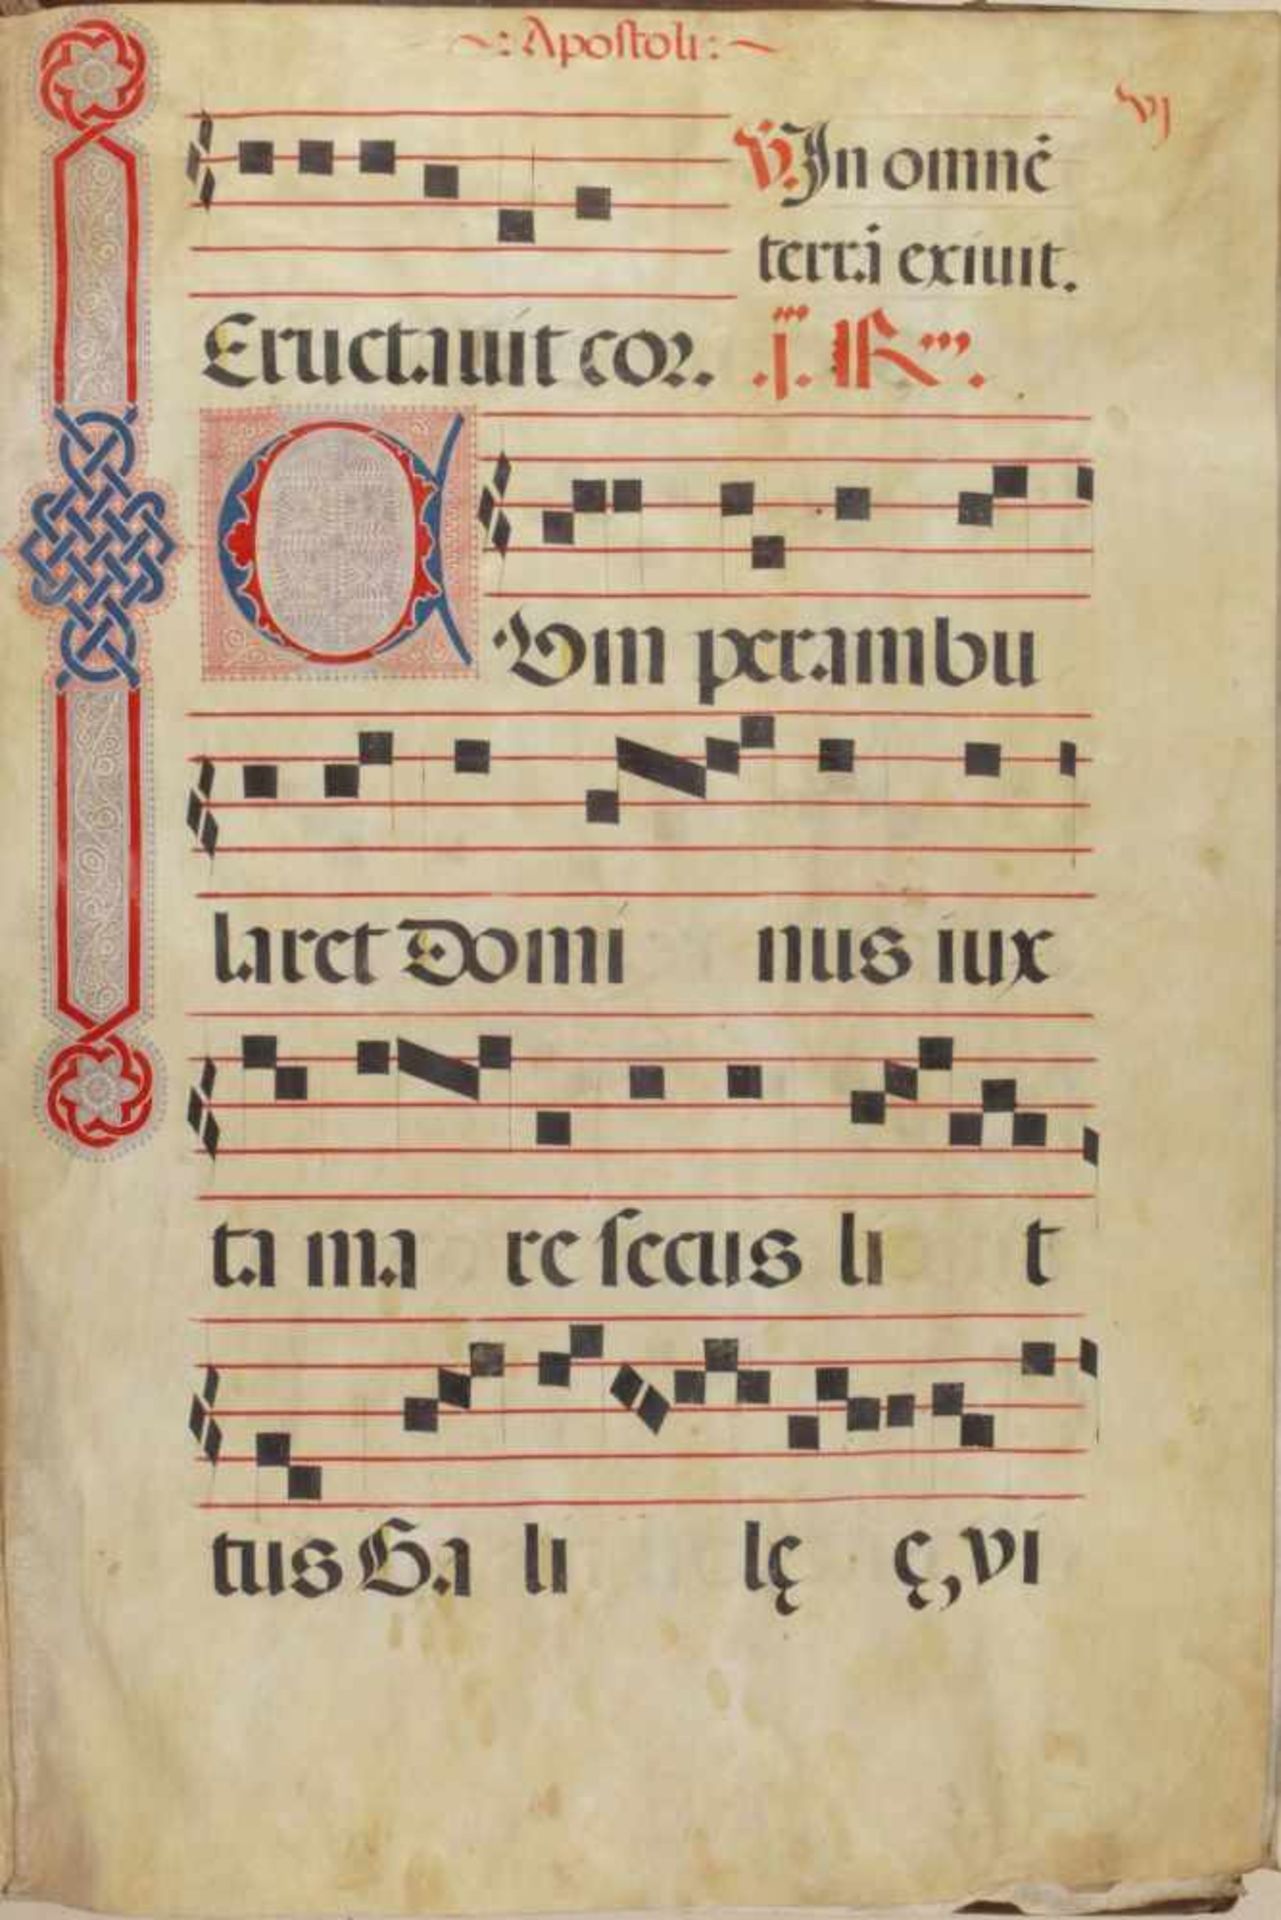 ~: Apostoli: ~
vj
℣. In omnē
terrā exiuit.
Eructauit cor. .j. R.
CVm perambu
laret Domi nus iux
ta ma re secus li t
tus Ga li lę ę, vi